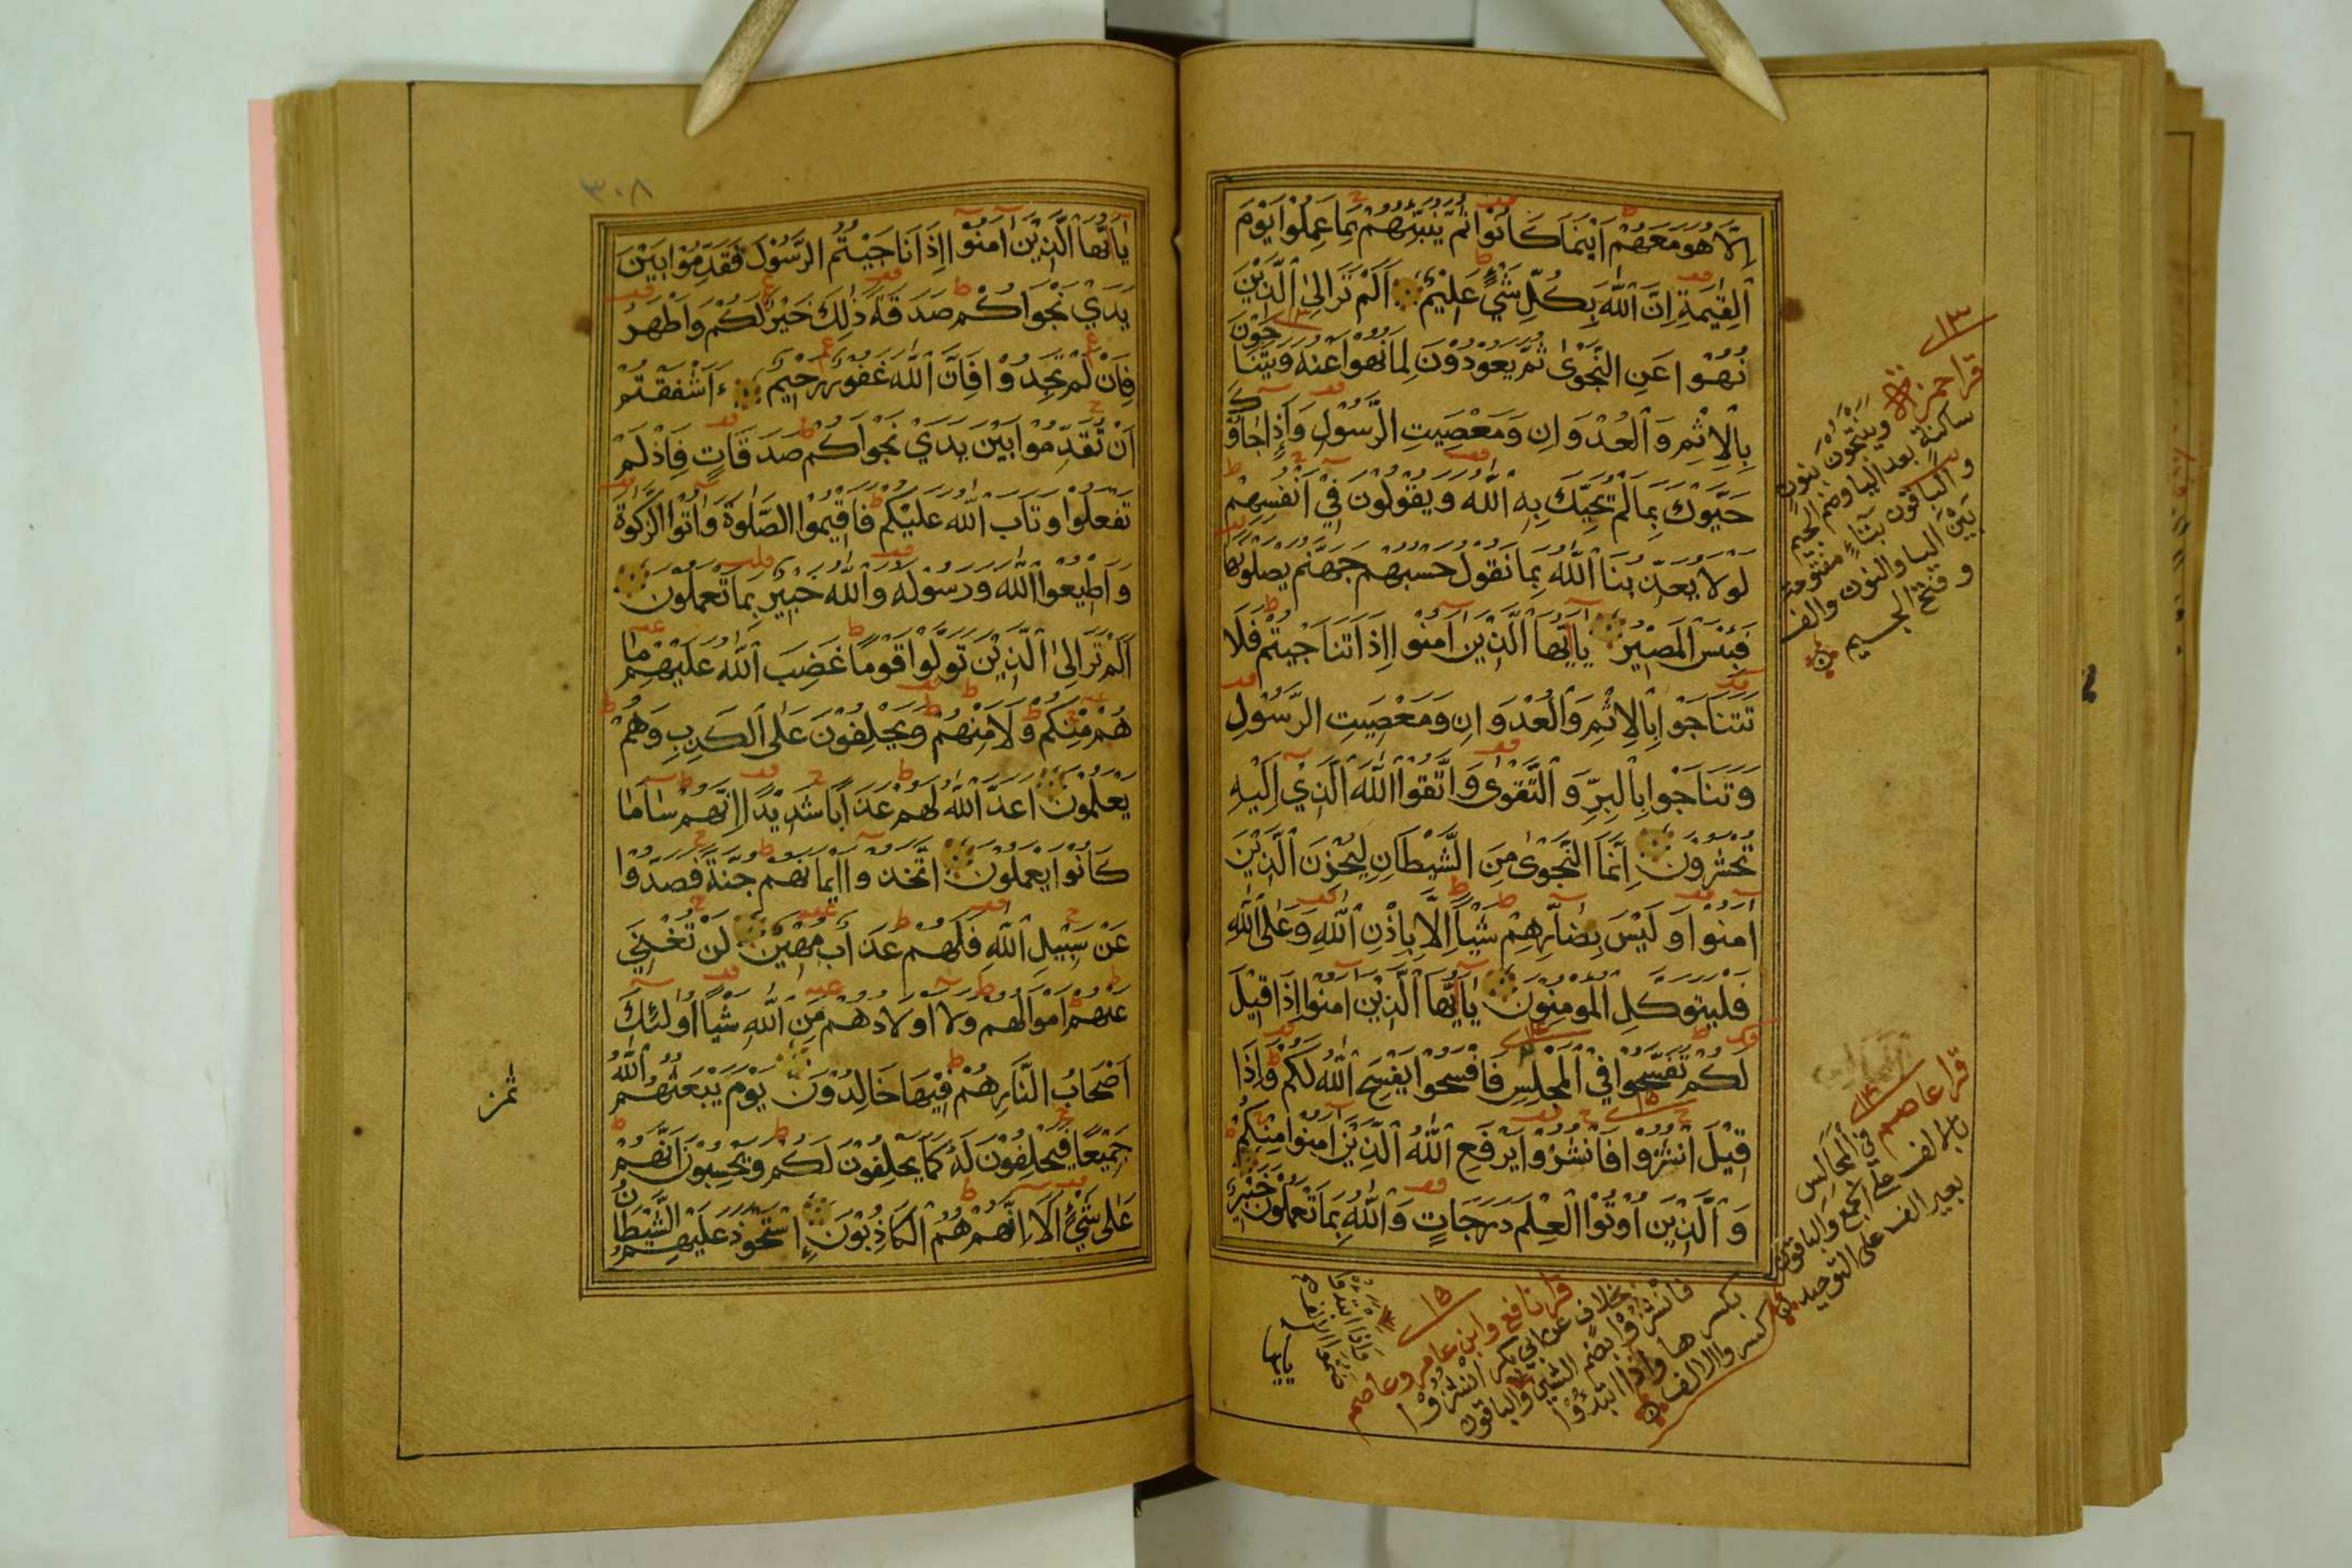 اِلَّا هُوَ مَعَهُمْ اَيْنَمَا كَانُوْا ثُمَّ يُنَبِّئُهُمْ بِمَا عَمِلُوْا يَوْمَ
الْقِيٰمَةِ اِنَّ اللّٰهَ بِكُلِّ شَيْءٍ عَلِيْمٌ اَلَمْ تَرَ اِلَى الَّذِيْنَ
نُهُوْا عَنِ النَّجْوٰى ثُمَّ يَعُوْدُوْنَ لِمَا نُهُوْا عَنْهُ وَيَتَنَاجَوْنَ
بِالْاِثْمِ وَالْعُدْوَانِ وَمَعْصِيَتِ الرَّسُوْلِ وَاِذَا جَاؤُكَ
حَيَّوْكَ بِمَا لَمْ يُحَيِّكَ بِهِ اللّٰهُ وَيَقُوْلُوْنَ فِيْ اَنْفُسِهِمْ
لَوْلَا يُعَذِّبُنَا اللّٰهُ بِمَا نَقُوْلُ حَسْبُهُمْ جَهَنَّمُ يَصْلَوْنَهَا
فَبِئْسَ الْمَصِيْرُ يَا اَيُّهَا الَّذِيْنَ اٰمَنُوْا اِذَا تَنَاجَيْتُمْ فَلَا
تَتَنَاجَوْا بِالْاِثْمِ وَالْعُدْوَانِ وَمَعْصِيَتِ الرَّسُوْلِ
وَتَنَاجَوْا بِالْبِرِّ وَالتَّقْوٰى وَاتَّقُوا اللّٰهَ الَّذِيْ اِلَيْهِ
تُحْشَرُوْنَ اِنَّمَا النَّجْوٰى مِنَ الشَّيْطَانِ لِيَحْزُنَ الَّذِيْنَ
اٰمَنُوْا وَلَيْسَ بِضَارِّهِمْ شَيْئًا اِلَّا بِاِذْنِ اللّٰهِ وَعَلَى اللّٰهِ
فَلْيَتَوَكَّلِ الْمُوْمِنُوْنَ يَا اَيُّهَا الَّذِيْنَ اٰمَنُوْا اِذَا قِيْلَ
لَكُمْ تَفَسَّحُوْا فِي الْمَجْلِسِ فَافْسَحُوْا يَفْسَحِ اللّٰهُ لَكُمْ وَاِذَا
قِيْلَ انْشُزُوْا فَانْشُزُوْا يَرْفَعِ اللّٰهُ الَّذِيْنَ اٰمَنُوْا مِنْكُمْ
وَالَّذِيْنَ اُوْتُوا الْعِلْمَ دَرَجَاتٍ وَاللّٰهُ بِمَا تَعْمَلُوْنَ خَبِيْرٌ
١٣
قرا حمزة وينتجون بنون
ساكنة بعد اليا وضم الجيم
والباقون بتاء مفتوحة
بين اليا والنون والف
وفتح الجيم
١٤
قرا عاصم في المجالس
بالالف على الجمع والباقون
بغير الف على التوحيد
١٥
قرا نافع وابن عامر وعاصم
بخلاف عن ابي بكر انشزوا
فانشزوا بضم الشين والباقون
بكسرها واذا ابتدؤوا
كسروا الالف
واذا ابتدوا
ضموا الالف
يا ايها
٣٠٨
يَا اَيُّهَا الَّذِيْنَ اٰمَنُوْا اِذَا نَاجَيْتُمُ الرَّسُوْلَ فَقَدِّمُوْا بَيْنَ
يَدَيْ نَجْوَاكُمْ صَدَقَةً ذٰلِكَ خَيْرٌ لَكُمْ وَاَطْهَرُ
فَاِنْ لَمْ تَجِدُوْا فَاِنَّ اللّٰهَ غَفُوْرٌ رَحِيْمٌ ءَاَشْفَقْتُمْ
اَنْ تُقَدِّمُوْا بَيْنَ يَدَيْ نَجْوَاكُمْ صَدَقَاتٍ فَاِذْ لَمْ
تَفْعَلُوْا وَتَابَ اللّٰهُ عَلَيْكُمْ فَاَقِيْمُوا الصَّلٰوةَ وَاٰتُوا الزَّكٰوةَ
وَاَطِيْعُوا اللّٰهَ وَرَسُوْلَهُ وَاللّٰهُ خَبِيْرٌ بِمَا تَعْمَلُوْنَ
اَلَمْ تَرَ اِلَى الَّذِيْنَ تَوَلَّوْا قَوْمًا غَضِبَ اللّٰهُ عَلَيْهِمْ مَا
هُمْ مِنْكُمْ وَلَا مِنْهُمْ وَيَحْلِفُوْنَ عَلَى الْكَذِبِ وَهُمْ
يَعْلَمُوْنَ اَعَدَّ اللّٰهُ لَهُمْ عَذَابًا شَدِيْدًا اِنَّهُمْ سَاءَ مَا
كَانُوْا يَعْمَلُوْنَ اتَّخَذُوْا اَيْمَانَهُمْ جُنَّةً فَصَدُّوْا
عَنْ سَبِيْلِ اللّٰهِ فَلَهُمْ عَذَابٌ مُهِيْنٌ لَنْ تُغْنِيَ
عَنْهُمْ اَمْوَالُهُمْ وَلَا اَوْلَادُهُمْ مِنَ اللّٰهِ شَيْئًا اُولٰئِكَ
اَصْحَابُ النَّارِ هُمْ فِيْهَا خَالِدُوْنَ يَوْمَ يَبْعَثُهُمُ اللّٰهُ
جَمِيْعًا فَيَحْلِفُوْنَ لَهُ كَمَا يَحْلِفُوْنَ لَكُمْ وَيَحْسِبُوْنَ اَنَّهُمْ
عَلٰى شَيْءٍ اَلَا اِنَّهُمْ هُمُ الْكَاذِبُوْنَ اِسْتَحْوَذَ عَلَيْهِمُ الشَّيْطَانُ
ثمن